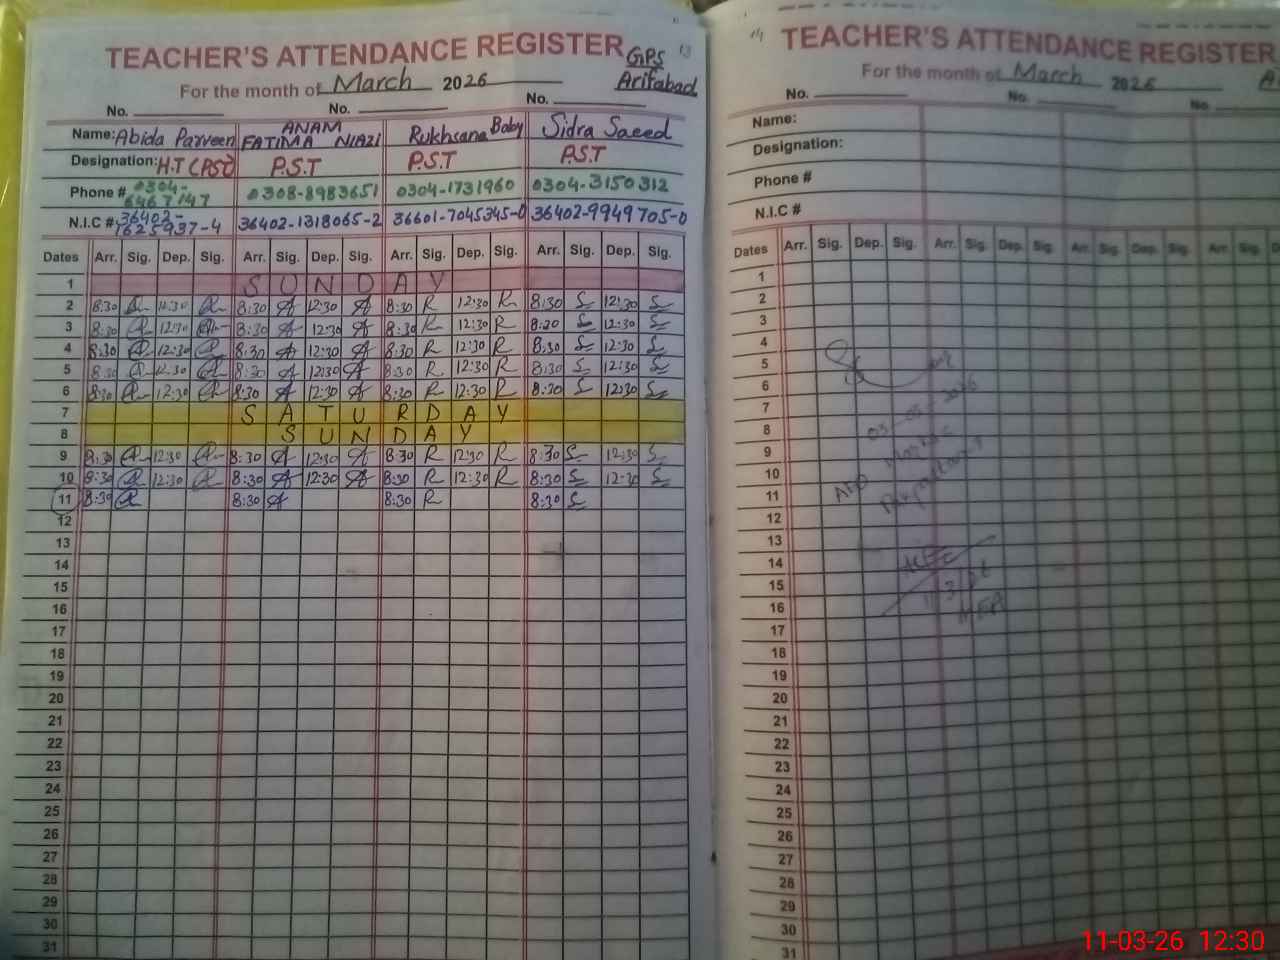 TEACHER'S ATTENDANCE REGISTER GPS 13
For the month of March 2026 Arifabad
No. No. No.
Name: Abida Parveen ANAM FATIMA NIAZI Rukhsana Baby Sidra Saeed
Designation: H.T (PST) P.S.T P.S.T P.S.T
Phone # 0304-6467147 0308-8983651 0304-1731960 0304-3150312
N.I.C # 36402-1625937-4 36402-1318065-2 36601-7045345-0 36402-9949705-0
Dates Arr. Sig. Dep. Sig. Arr. Sig. Dep. Sig. Arr. Sig. Dep. Sig. Arr. Sig. Dep. Sig.
1 SUNDAY
2 8:30 12:30 8:30 A 12:30 A 8:30 R 12:30 R 8:30 S 12:30 S
3 8:30 12:30 8:30 A 12:30 A 8:30 R 12:30 R 8:30 S 12:30 S
4 8:30 12:30 8:30 A 12:30 A 8:30 R 12:30 R 8:30 S 12:30 S
5 8:30 12:30 8:30 A 12:30 A 8:30 R 12:30 R 8:30 S 12:30 S
6 8:30 12:30 8:30 A 12:30 A 8:30 R 12:30 R 8:30 S 12:30 S
7 SATURDAY
8 SUNDAY
9 8:30 12:30 8:30 A 12:30 A 8:30 R 12:30 R 8:30 S 12:30 S
10 8:30 12:30 8:30 A 12:30 A 8:30 R 12:30 R 8:30 S 12:30 S
11 8:30 8:30 A 8:30 R 8:30 S
12
13
14
15
16
17
18
19
20
21
22
23
24
25
26
27
28
29
30
31
14 TEACHER'S ATTENDANCE REGISTER
For the month of March 2026
No. No. No.
Name:
Designation:
Phone #
N.I.C #
Dates Arr. Sig. Dep. Sig. Arr. Sig. Dep. Sig. Arr. Sig. Dep. Sig. Arr. Sig.
1
2
3
4
5
6
7
8
9
10
11
12
13
14
15
16
17
18
19
20
21
22
23
24
25
26
27
28
29
30
31
03-03-2026
AEO
MEA
11-03-26 12:30